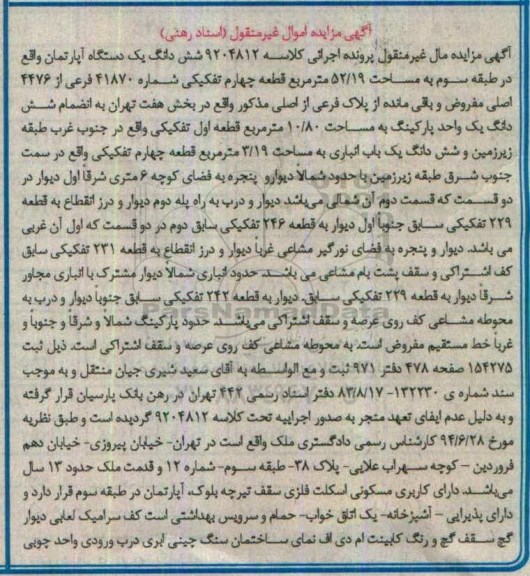 آگهی مزایده اموال غیرمنقول (اسناد رهنی)
آگهی مزایده مال غیرمنقول پرونده اجرائی کلاسه ۹۲۰۴۸۱۲ شش دانگ یک دستگاه آپارتمان واقع
در طبقه سوم به مساحت ۵۲/۱۹ مترمربع قطعه چهارم تفکیکی شماره ۴۱۸۷۰ فرعی از ۴۴۷۶
اصلی مفروض و باقی مانده از پلاک فرعی از اصلی مذکور واقع در بخش هفت تهران به انضمام شش
دانگ یک واحد پارکینگ به مساحت ۱۰/۸۰ مترمربع قطعه اول تفکیکی واقع در جنوب غرب طبقه
زیرزمین و شش دانگ یک باب انباری به مساحت ۳/۱۹ مترمربع قطعه چهارم تفکیکی واقع در سمت
جنوب شرق طبقه زیرزمین با حدود شمالا دیوارو پنجره به فضای کوچه ۶ متری شرقا اول دیوار در
دو قسمت که قسمت دوم آن شمالی می‌باشد دیوار و درب به راه پله دوم دیوار و درز انقطاع به قطعه
۲۲۹ تفکیکی سابق جنوبا اول دیوار به قطعه ۲۴۶ تفکیکی سابق دوم در دو قسمت که اول آن غربی
می باشد. دیوار و پنجره به فضای نورگیر مشاعی غربا دیوار و درز انقطاع به قطعه ۲۳۱ تفکیکی سابق
کف اشتراکی و سقف پشت بام مشاعی می باشد. حدود انباری شمالا دیوار مشترک با انباری مجاور
شرقاً دیوار به قطعه ۲۲۹ تفکیکی سابق. دیوار به قطعه ۲۴۲ تفکیکی سابق جنوباً دیوار و درب به
محوطه مشاعی کف روی عرصه و سقف اشتراکی می‌باشد. حدود پارکینگ شمالا و شرقا و جنوبا و
غربا خط مستقیم مفروض است. به محوطه مشاعی کف روی عرصه و سقف اشتراکی است. ذیل ثبت
۱۵۴۲۷۵ صفحه ۴۷۸ دفتر ۹۷۱ ثبت و مع الواسطه به آقای سعید شیری جیان منتقل و به موجب
سند شماره ی ۱۳۲۲۳۰-۸۳/۸/۱۷ دفتر اسناد رسمی ۴۴۲ تهران در رهن بانک پارسیان قرار گرفته
و به دلیل عدم ایفای تعهد منجر به صدور اجراییه تحت کلاسه ۹۲۰۴۸۱۲ گردیده است و طبق نظریه
مورخ ۹۴/۶/۲۸ کارشناس رسمی دادگستری ملک واقع است در تهران- خیابان پیروزی- خیابان دهم
فروردین – کوچه سهراب علایی- پلاک ۳۸- طبقه سوم- شماره ۱۲ و قدمت ملک حدود ۱۳ سال
می‌باشد. دارای کاربری مسکونی اسکلت فلزی سقف تیرچه بلوک، آپارتمان در طبقه سوم قرار دارد و
دارای پذیرایی – آشپزخانه- یک اتاق خواب- حمام و سرویس بهداشتی است کف سرامیک لعابی دیوار
گچ سقف گچ و رنگ کابینت ام دی اف نمای ساختمان سنگ چینی ابری درب ورودی واحد چوبی
ParsNamadData